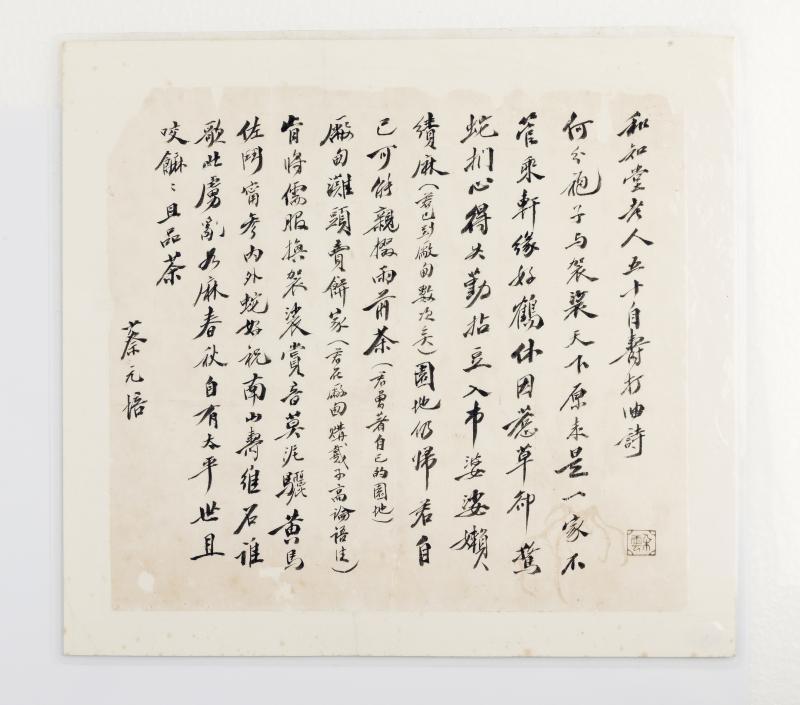 和知堂老人五十自壽打油詩
何分袍子与袈裟天下原来是一家不
管乘軒緣好鶴休因惹草却驚
蛇捫心得失勤拈豆入市婆娑懶
績麻（君已到廠甸數次矣）園地仍歸君自
己可能親掇雨前茶（君曾著自己的園地）
廠甸灘頭賣餅家（君在廠甸購戴子高論語注）
肯將儒服換袈裟賞音莫泥驪黃馬
佐鬥甯參內外蛇好祝南山壽維石誰
歌北虜亂如麻春秋自有太平世且
咬饝〻且品茶
蔡元培
朵雲